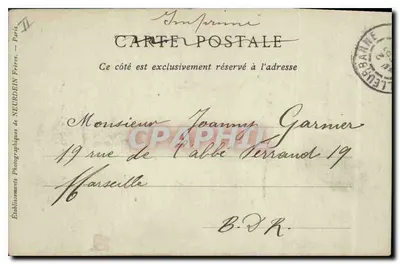 II
Imprimé
CARTE POSTALE
Ce côté est exclusivement réservé à l'adresse
Monsieur Joanny Garnier
19 rue de l'abbé Ferraud 19
Marseille
B.D.R.
Etablissements Photographiques de NEURDEIN Frères. — Paris
LEURBANNE
CPAPHIL